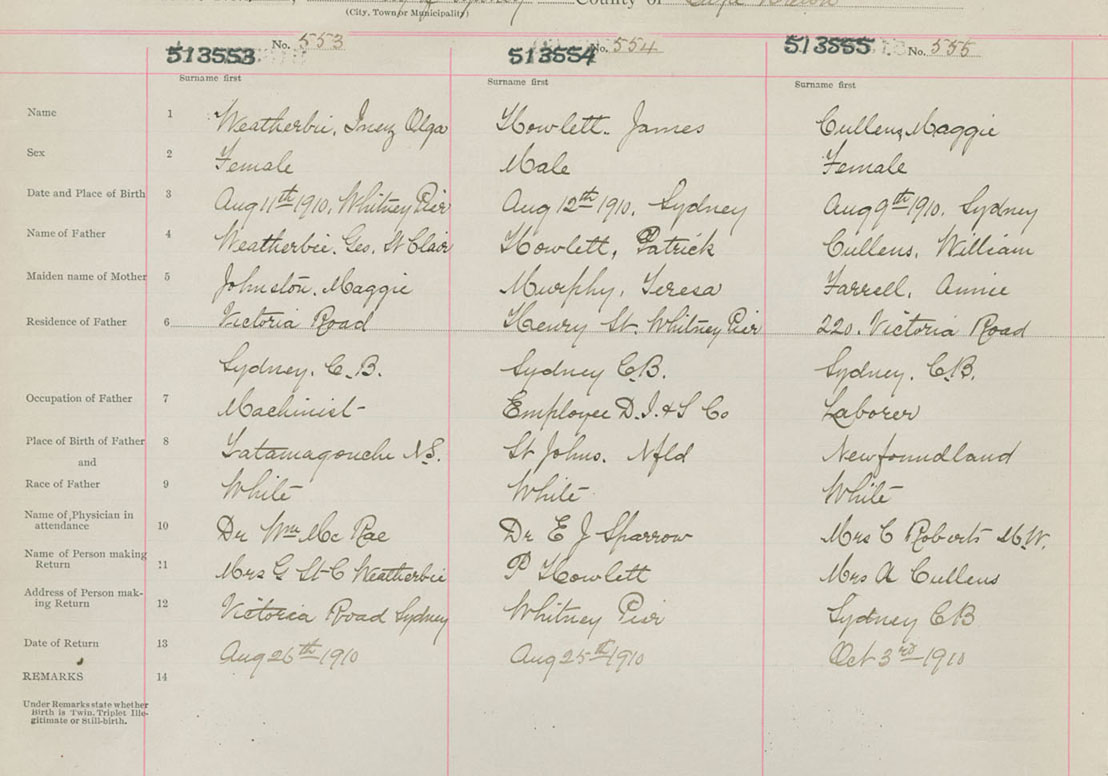 County of Cape Breton
(City, Town or Municipality)
513553 No. 553 513554 No. 554 513555 No. 555
Surname first Surname first Surname first
Name 1 Weatherbie, Inez Olga Howlett. James Cullens, Maggie
Sex 2 Female Male Female
Date and Place of Birth 3 Aug 11th 1910. Whitney Pier Aug 12th 1910. Sydney Aug 9th 1910. Sydney
Name of Father 4 Weatherbie. Geo. St Clair Howlett, Patrick Cullens, William
Maiden name of Mother 5 Johnston. Maggie Murphy, Teresa Farrell, Annie
Residence of Father 6 Victoria Road Henry St. Whitney Pier 220. Victoria Road
Sydney. C.B. Sydney C.B. Sydney. C.B.
Occupation of Father 7 Machinist Employee D.I. & S Co Laborer
Place of Birth of Father 8 Tatamagouche N.S. St Johns. Nfld Newfoundland
and
Race of Father 9 White White White
Name of Physician in
attendance 10 Dr Wm Mc Rae Dr E J Sparrow Mrs C Roberts M.W.
Name of Person making
Return 11 Mrs G St C Weatherbie P Howlett Mrs A Cullens
Address of Person mak-
ing Return 12 Victoria Road Sydney Whitney Pier Sydney C B
Date of Return 13 Aug 26th 1910 Aug 25th 1910 Oct 3rd 1910
REMARKS 14
Under Remarks state whether
Birth is Twin, Triplet Ille-
gitimate or Still-birth.